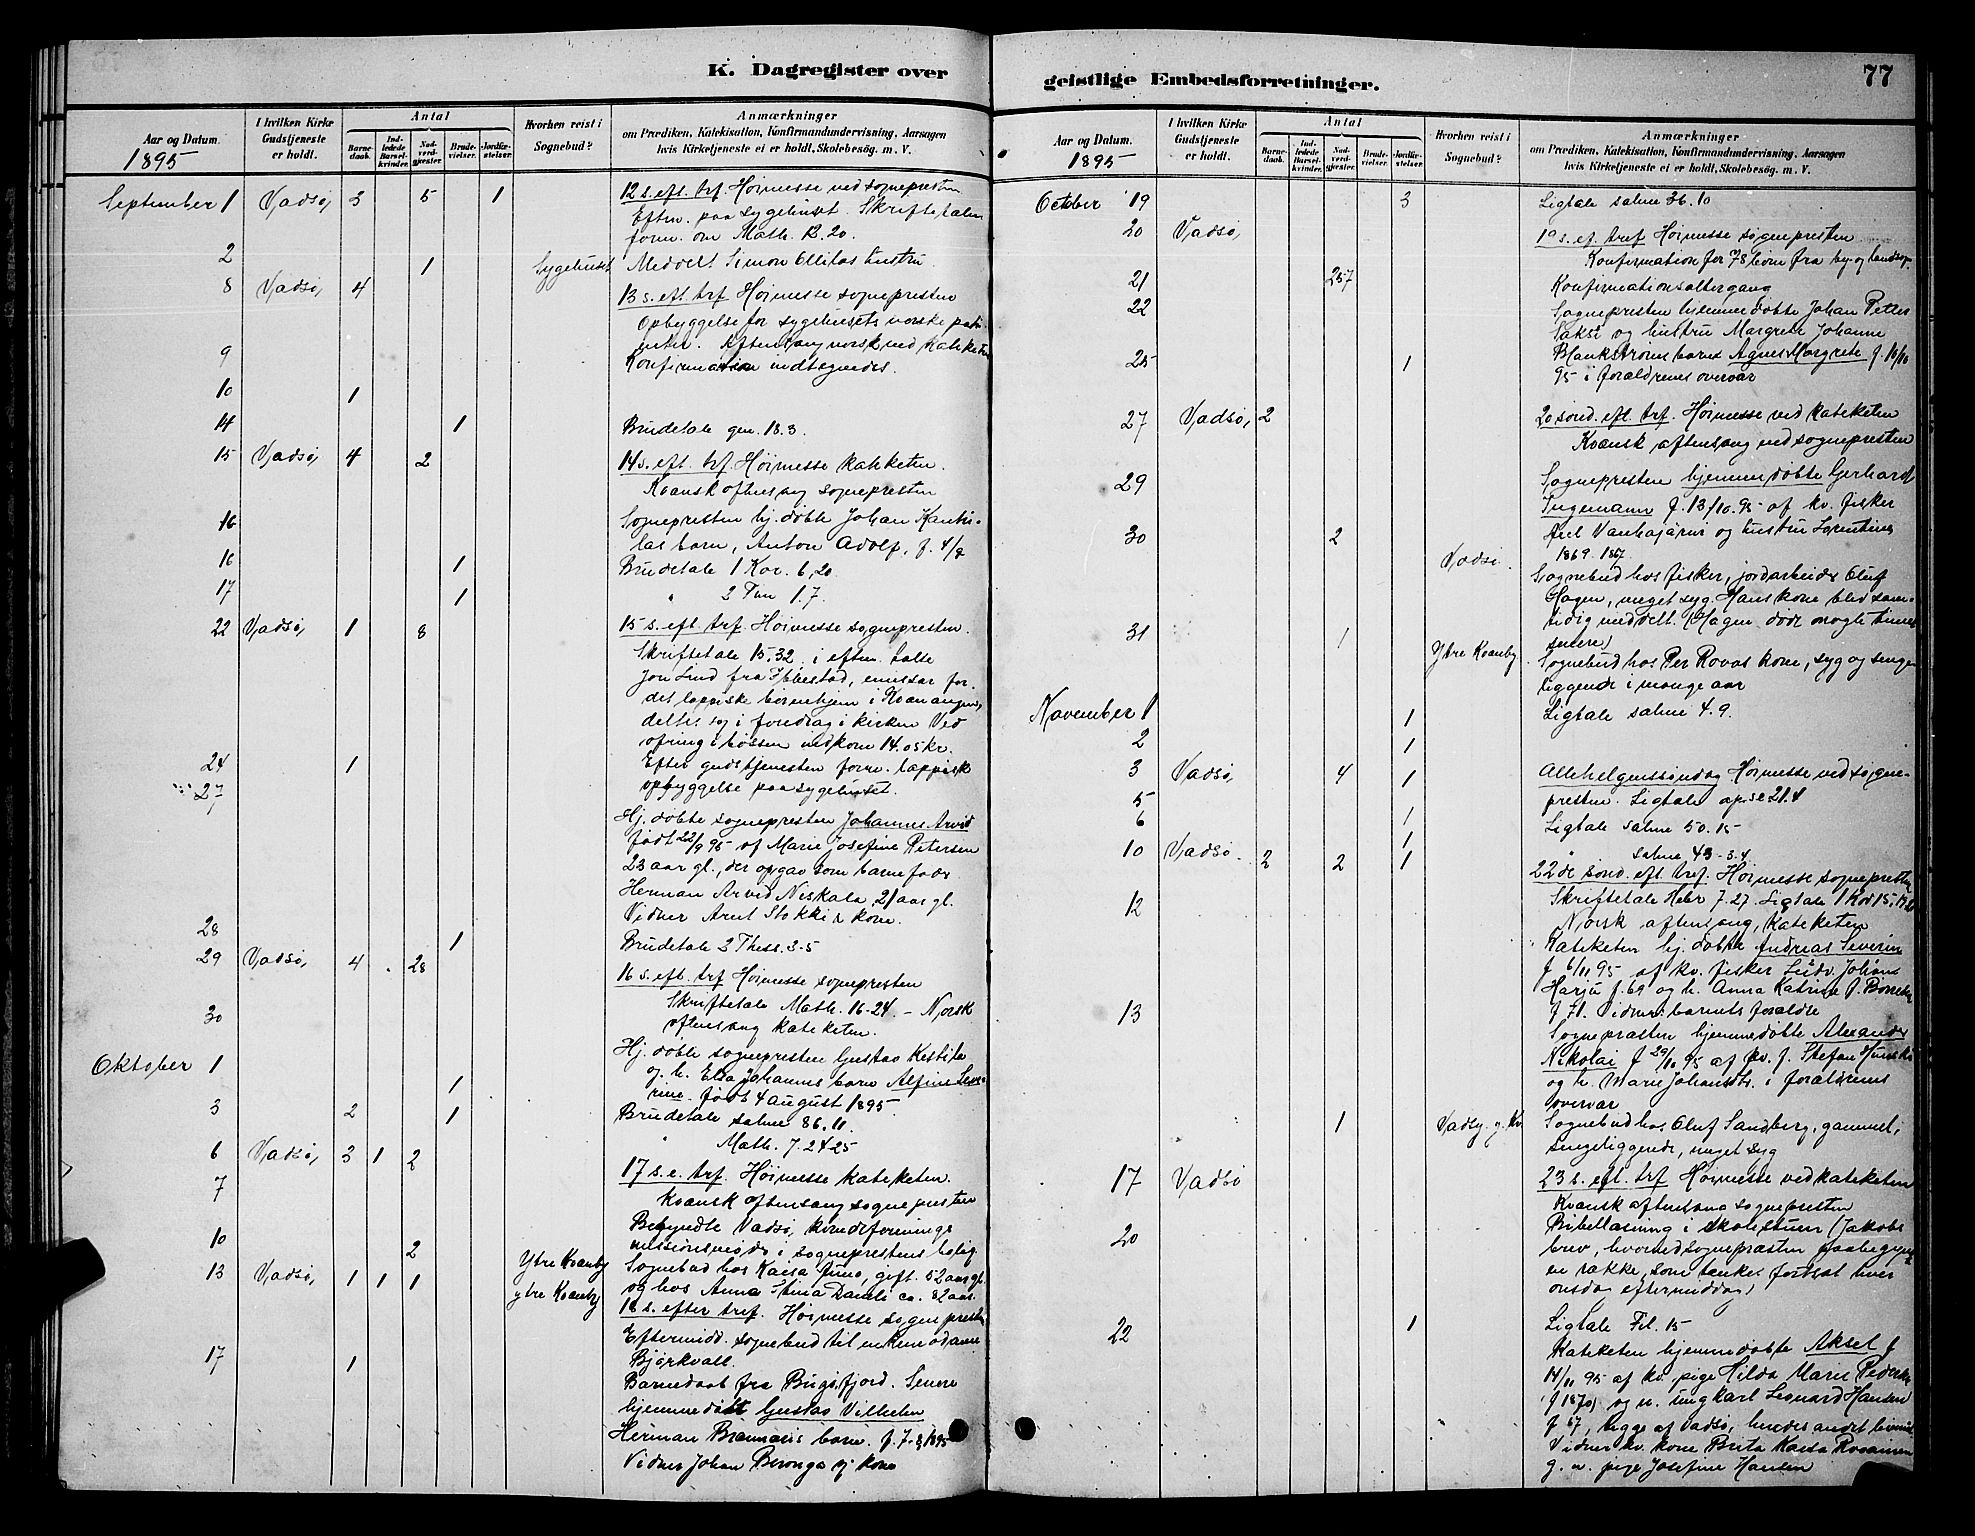 K. Dagregister over
Aar og Datum.
1895
I hvilken Kirke Gudstjeneste er holdt.
Antal
Barnedaab.
Indledede Barselkvinder.
Nadverdgjester.
Brudevielser.
Jordfæstelser.
Hvorhen reist i Sognebud?
Anmærkninger
om Prædiken, Katekisation, Konfirmandundervisning, Aarsagen
hvis Kirketjeneste ei er holdt, Skolebesøg. m. V.
September 1 Vadsø, 3 5 1 12 s. eft. trf. Høimesse ved sognepresten
Efterm. paa sygehuset. Skriftetalen
form. om Math. 12.20.
2 1 Sygehuset Meddelt Simon Ollilas hustru
8 Vadsø, 4 13 s. eft. trf Høimesse sognepresten
Opbyggelse for sygehusets norske pati-
enter. Aftensang norsk ved kateketen
9 Konfirmation indtegnedes.
10 1
14 1 Brudetale gen. 18.3.
15 Vadsø, 4 2 14 s. eft. trf. Høimesse kateketen.
Kvænsk aftensang sognepresten
16 Sognepresten hj. døbte Johan
barn, Anton Adolf, f. 4/9
16 1 Brudetale 1 Kor. 6,20
17 1 " 2 Tim 1.7.
22 Vadsø, 1 8 15 s. eft. trf. Høimesse sognepresten.
Skriftetale 15.32 i efterm. talte
Jon Lind fra Ibbestad, emissær for
det lappiske børnehjem i Kvænangen,
og i foredrag i kirken Ved
ofring i bøssen indkom 14.05 kr.
24 1 Efter gudstjenesten forre. lappisk
27 opbyggelse paa sygehuset.
Hj. døbte sognepresten Johannes Arvid
født 22/9 95 af Marie Josefine Petersen
23 aar gl., der opgav som barnefader
Herman Arvid Niskala, 21 aar gl.
Vidner Arnt Stokki & kone.
28 1 Brudetale 2 Thess. 3-5
29 Vadsø, 4 28 16 s. eft. trf Høimesse sognepresten
Skriftetale Math. 16-24. – Norsk
30 aftensang kateketen.
Hj. døbte sognepresten Gustav Kestila
Oktober 1 og h. Elsa Johannes barn
1 født 4 august 1895.
3 2 1 Brudetale salme 86.11.
" Math. 7.24-25
6 Vadsø, 3 1 2 17 s. e. trf. Høimesse kateketen.
7 Kvænsk aftensang sognepresten
Begyndte Vadsø, kvindeforenings
10 2 missionsmøder i sogneprestens bolig
Ytre Kvænby Sognebud hos Kaisa Juno, gift. 52 aar gl.
13 Vadsø, 1 1 1 ytre Kvænby og hos Anna Stina Daneli ca. 82 aar.
18 s. efter tref. Høimesse sognepresten
Eftermidd. sognebud til enkemadame
17 1 Bjørkvall.
Barnedaab fra Bugøfjord. Senere
hjemmedøbt Gustav Vilhelm
Herman barn. f. 7-9 1895
Vidner Johan Beronga og kone

geistlige Embedsforretninger. 77
Aar og Datum.
1895
I hvilken Kirke Gudstjeneste er holdt.
Antal
Barnedaab.
Indledede Barselkvinder.
Nadverdgjester.
Brudevielser.
Jordfæstelser.
Hvorhen reist i Sognebud?
Anmærkninger
om Prædiken, Katekisation, Konfirmandundervisning, Aarsagen
hvis Kirketjeneste ei er holdt, Skolebesøg. m. V.
October 19 3 Ligtale salme 36.10
20 Vadsø, 19 s. ef. tref Høimesse sognepresten
Konfirmation for 78 børn fra by og landsogn
21 257 Konfirmationsaltergang
22 Sognepresten hjemmedøbte Johan Petter
Saksi og hustru Margrete Johanne
Blankstrøms barn Agnes Margrete f. 10/10
25 1 95 i forældrenes overvær
27 Vadsø, 2 20 sønd. eft. trf. Høimesse ved kateketen
Kvænsk aftensang ved sognepresten
29 Sognepresten hjemmedøbte Gerhard
Ingemann f. 13/10.95 af kv. fisker
30 2 Axel Vanhajärvi og hustru Lorentine
1869. 1867.
Vadsø. Sognebud hos fisker, jordarbeider Oluf
Hagen, meget syg. Hans kone blev sam-
tidig meddelt. (Hagen døde nogle timer
31 1 senere)
Ytre Kvænby Sognebud hos Per Rovas kone, syg og senge-
liggende i mange aar
November 1 1 Ligtale salme 4.9.
2 1
3 Vadsø, 4 1 Allehelgenssøndag Høimesse ved sogne-
5 presten. Ligtale ap.se 21.4
6 1 Ligtale salme 50.15
1 " salme 43-3.4
10 Vadsø. 2 2 1 22de sønd. eft. tref. Høimesse sognepresten
12 Skriftetale Hebr 7.27. Ligtale 1 Kor 15,
Norsk aftensang, kateketen
Kateketen hj. døbte Andreas Severin
f 6/11 95 af kv. fisker Johans
Harju f. 69 og h. Anna Katrine f.
13 f 71. Vidner: barnets forældre
Sognepræsten hjemmedøbte Alexander
Nikolai f 29/10 95 af kv. f. Stefan
og h. Marie Johansdtr. i forældrenes
overvær
1 Sognebud hos Oluf Sandberg, gammel,
sengeliggende, meget syg
17 Vadsø 23 s. eft. trf Høimesse ved kateketen
Kvænsk aftensang sognepresten
20 Bibellæsning i skolestuen (Jakobs
brev, hvormed sognepræsten paabegynder
en række, som tænkes fortsat hver
onsdag eftermiddag)
22 1 Ligtale Fil. 15
Kateketen hjemmedøbte Aksel f
14/11 95 af kv. pige Hilda Marie Pedersen
(f 1870) og u. ungkarl Leonard Hansen
f 67, begge af Vadsø, hendes andet
Vidner kv. kone Brita Kaisa
g. n. pige Josefine Hansen